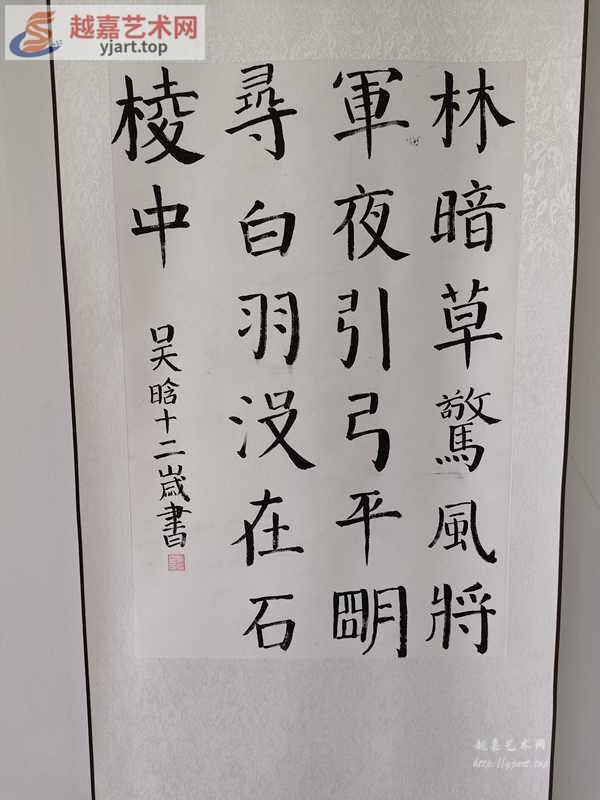 越嘉艺术网
yjart.top
林暗草驚風將
軍夜引弓平朙
尋白羽沒在石
棱中
吴晗十二歲書
越嘉艺术网
http://yjart.top